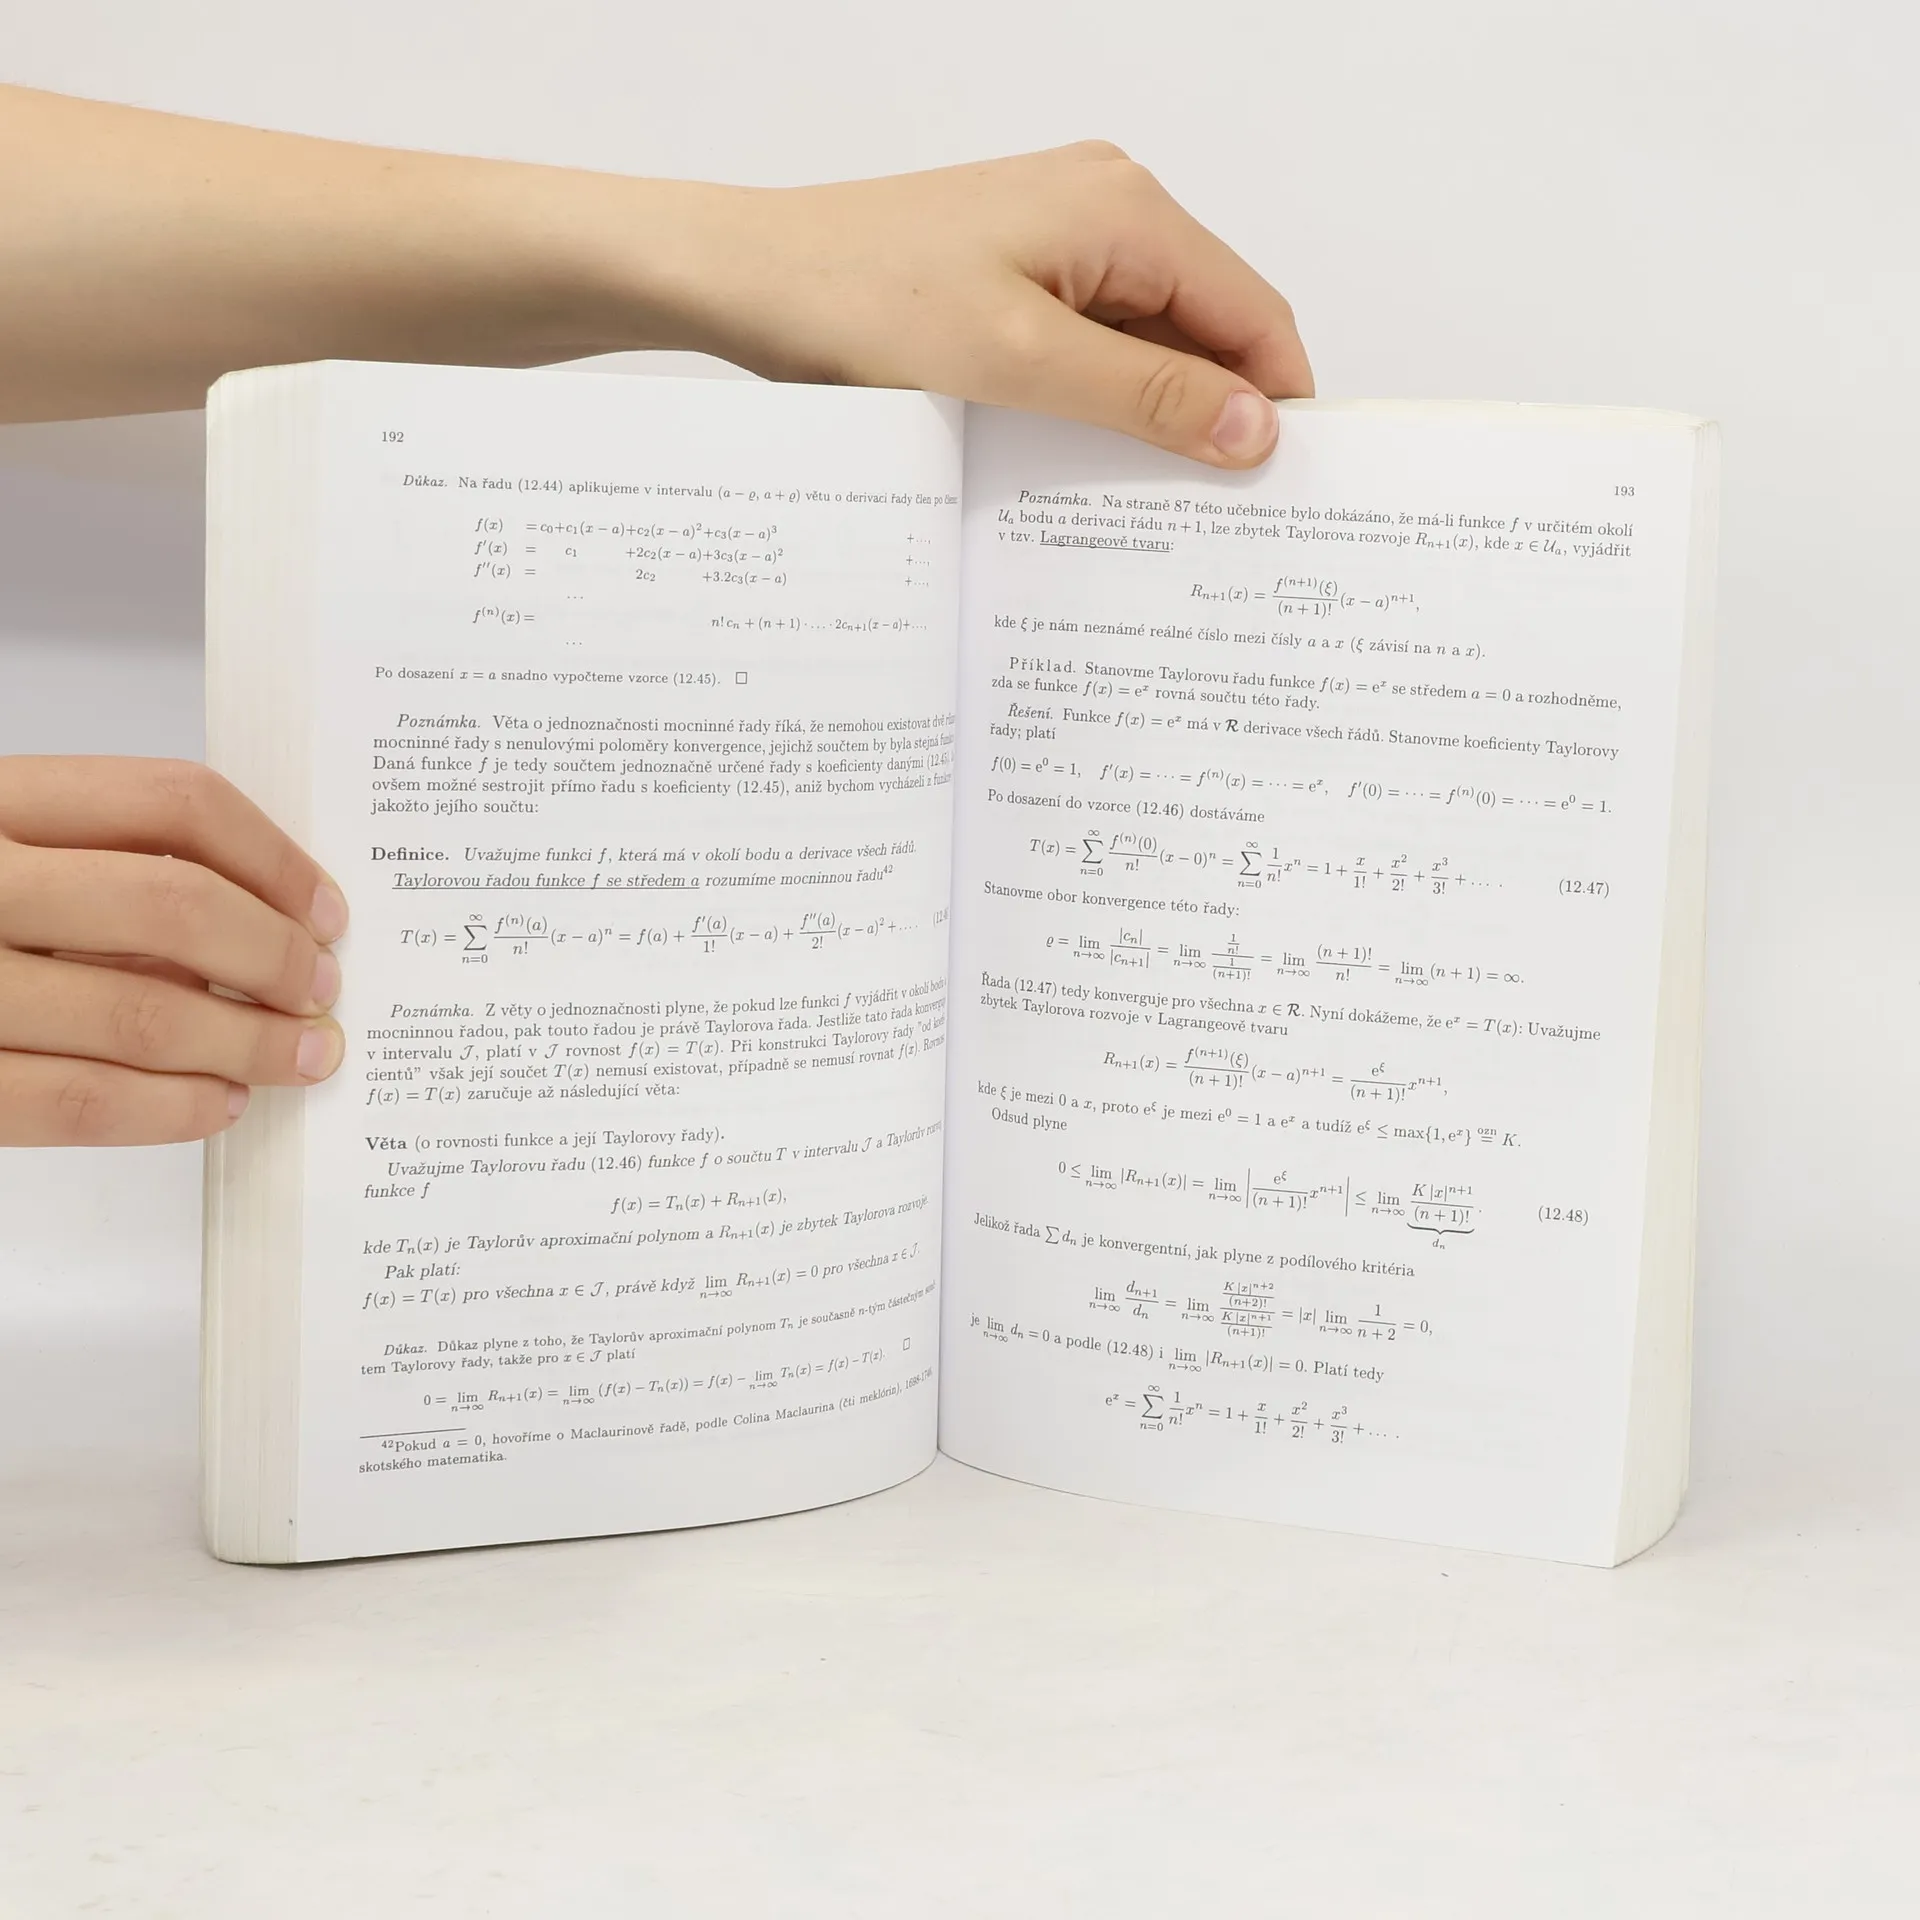 192
Důkaz. Na řadu (12.44) aplikujeme v intervalu (a − ϱ, a + ϱ) větu o derivaci řady člen po
f(x) = c₀+c₁(x − a)+c₂(x − a)²+c₃(x − a)³ +…,
f′(x) = c₁ +2c₂(x − a)+3c₃(x − a)² +…,
f″(x) = 2c₂ +3.2c₃(x − a) +…,
…
f⁽ⁿ⁾(x) = n! cₙ + (n + 1) · … · 2cₙ₊₁(x − a)+…,
…
Po dosazení x = a snadno vypočteme vzorce (12.45). □
Poznámka. Věta o jednoznačnosti mocninné řady říká, že nemohou existovat dvě
mocninné řady s nenulovými poloměry konvergence, jejichž součtem by byla stejná
Daná funkce f je tedy součtem jednoznačně určené řady s koeficienty danými
ovšem možné sestrojit přímo řadu s koeficienty (12.45), aniž bychom vycházeli z
jakožto jejího součtu:
Definice. Uvažujme funkci f, která má v okolí bodu a derivace všech řádů.
Taylorovou řadou funkce f se středem a rozumíme mocninnou řadu⁴²
T(x) = ∑_{n=0}^{∞} f⁽ⁿ⁾(a)/n! (x − a)ⁿ = f(a) + f′(a)/1! (x − a) + f″(a)/2! (x − a)² + … .
Poznámka. Z věty o jednoznačnosti plyne, že pokud lze funkci f vyjádřit v okolí bodu
mocninnou řadou, pak touto řadou je právě Taylorova řada. Jestliže tato řada
v intervalu 𝒥, platí v 𝒥 rovnost f(x) = T(x). Při konstrukci Taylorovy řady "od
cientů" však její součet T(x) nemusí existovat, případně se nemusí rovnat f(x).
f(x) = T(x) zaručuje až následující věta:
Věta (o rovnosti funkce a její Taylorovy řady).
Uvažujme Taylorovu řadu (12.46) funkce f o součtu T v intervalu 𝒥 a Taylorův
funkce f
f(x) = Tₙ(x) + Rₙ₊₁(x),
kde Tₙ(x) je Taylorův aproximační polynom a Rₙ₊₁(x) je zbytek Taylorova rozvoje.
Pak platí:
f(x) = T(x) pro všechna x ∈ 𝒥, právě když lim_{n→∞} Rₙ₊₁(x) = 0 pro všechna x ∈ 𝒥.
Důkaz. Důkaz plyne z toho, že Taylorův aproximační polynom Tₙ je současně n-tým částečným
tem Taylorovy řady, takže pro x ∈ 𝒥 platí
0 = lim_{n→∞} Rₙ₊₁(x) = lim_{n→∞} (f(x) − Tₙ(x)) = f(x) − lim_{n→∞} Tₙ(x) = f(x) − T(x). □
⁴²Pokud a = 0, hovoříme o Maclaurinově řadě, podle Colina Maclaurina (čti meklórin), 1698-1746,
skotského matematika.
193
Poznámka. Na straně 87 této učebnice bylo dokázáno, že má-li funkce f v určitém okolí
𝒰ₐ bodu a derivaci řádu n + 1, lze zbytek Taylorova rozvoje Rₙ₊₁(x), kde x ∈ 𝒰ₐ, vyjádřit
v tzv. Lagrangeově tvaru:
Rₙ₊₁(x) = f⁽ⁿ⁺¹⁾(ξ)/(n + 1)! (x − a)ⁿ⁺¹,
kde ξ je nám neznámé reálné číslo mezi čísly a a x (ξ závisí na n a x).
Příklad. Stanovme Taylorovu řadu funkce f(x) = eˣ se středem a = 0 a rozhodněme,
zda se funkce f(x) = eˣ rovná součtu této řady.
Řešení. Funkce f(x) = eˣ má v ℛ derivace všech řádů. Stanovme koeficienty Taylorovy
řady; platí
f(0) = e⁰ = 1, f′(x) = ⋯ = f⁽ⁿ⁾(x) = ⋯ = eˣ, f′(0) = ⋯ = f⁽ⁿ⁾(0) = ⋯ = e⁰ = 1.
Po dosazení do vzorce (12.46) dostáváme
T(x) = ∑_{n=0}^{∞} f⁽ⁿ⁾(0)/n! (x − 0)ⁿ = ∑_{n=0}^{∞} 1/n! xⁿ = 1 + x/1! + x²/2! + x³/3! + … . (12.47)
Stanovme obor konvergence této řady:
ϱ = lim_{n→∞} |cₙ|/|cₙ₊₁| = lim_{n→∞} (1/n!)/(1/(n+1)!) = lim_{n→∞} (n + 1)!/n! = lim_{n→∞} (n + 1) = ∞.
Řada (12.47) tedy konverguje pro všechna x ∈ ℛ. Nyní dokážeme, že eˣ = T(x): Uvažujme
zbytek Taylorova rozvoje v Lagrangeově tvaru
Rₙ₊₁(x) = f⁽ⁿ⁺¹⁾(ξ)/(n + 1)! (x − a)ⁿ⁺¹ = e^ξ/(n + 1)! xⁿ⁺¹,
kde ξ je mezi 0 a x, proto e^ξ je mezi e⁰ = 1 a eˣ a tudíž e^ξ ≤ max{1, eˣ} =^{ozn} K.
Odsud plyne
0 ≤ lim_{n→∞} |Rₙ₊₁(x)| = lim_{n→∞} |e^ξ/(n + 1)! xⁿ⁺¹| ≤ lim_{n→∞} K |x|ⁿ⁺¹/(n + 1)! . (12.48)
dₙ
Jelikož řada ∑ dₙ je konvergentní, jak plyne z podílového kritéria
lim_{n→∞} dₙ₊₁/dₙ = lim_{n→∞} (K |x|ⁿ⁺²/(n+2)!)/(K |x|ⁿ⁺¹/(n+1)!) = |x| lim_{n→∞} 1/(n + 2) = 0,
je lim_{n→∞} dₙ = 0 a podle (12.48) i lim_{n→∞} |Rₙ₊₁(x)| = 0. Platí tedy
eˣ = ∑_{n=0}^{∞} 1/n! xⁿ = 1 + x/1! + x²/2! + x³/3! + … .